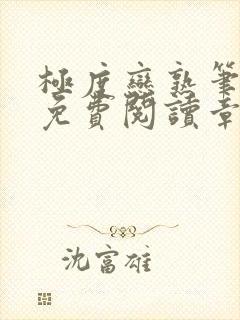 極度戀熟筆
免費閱讀章
沈富雄